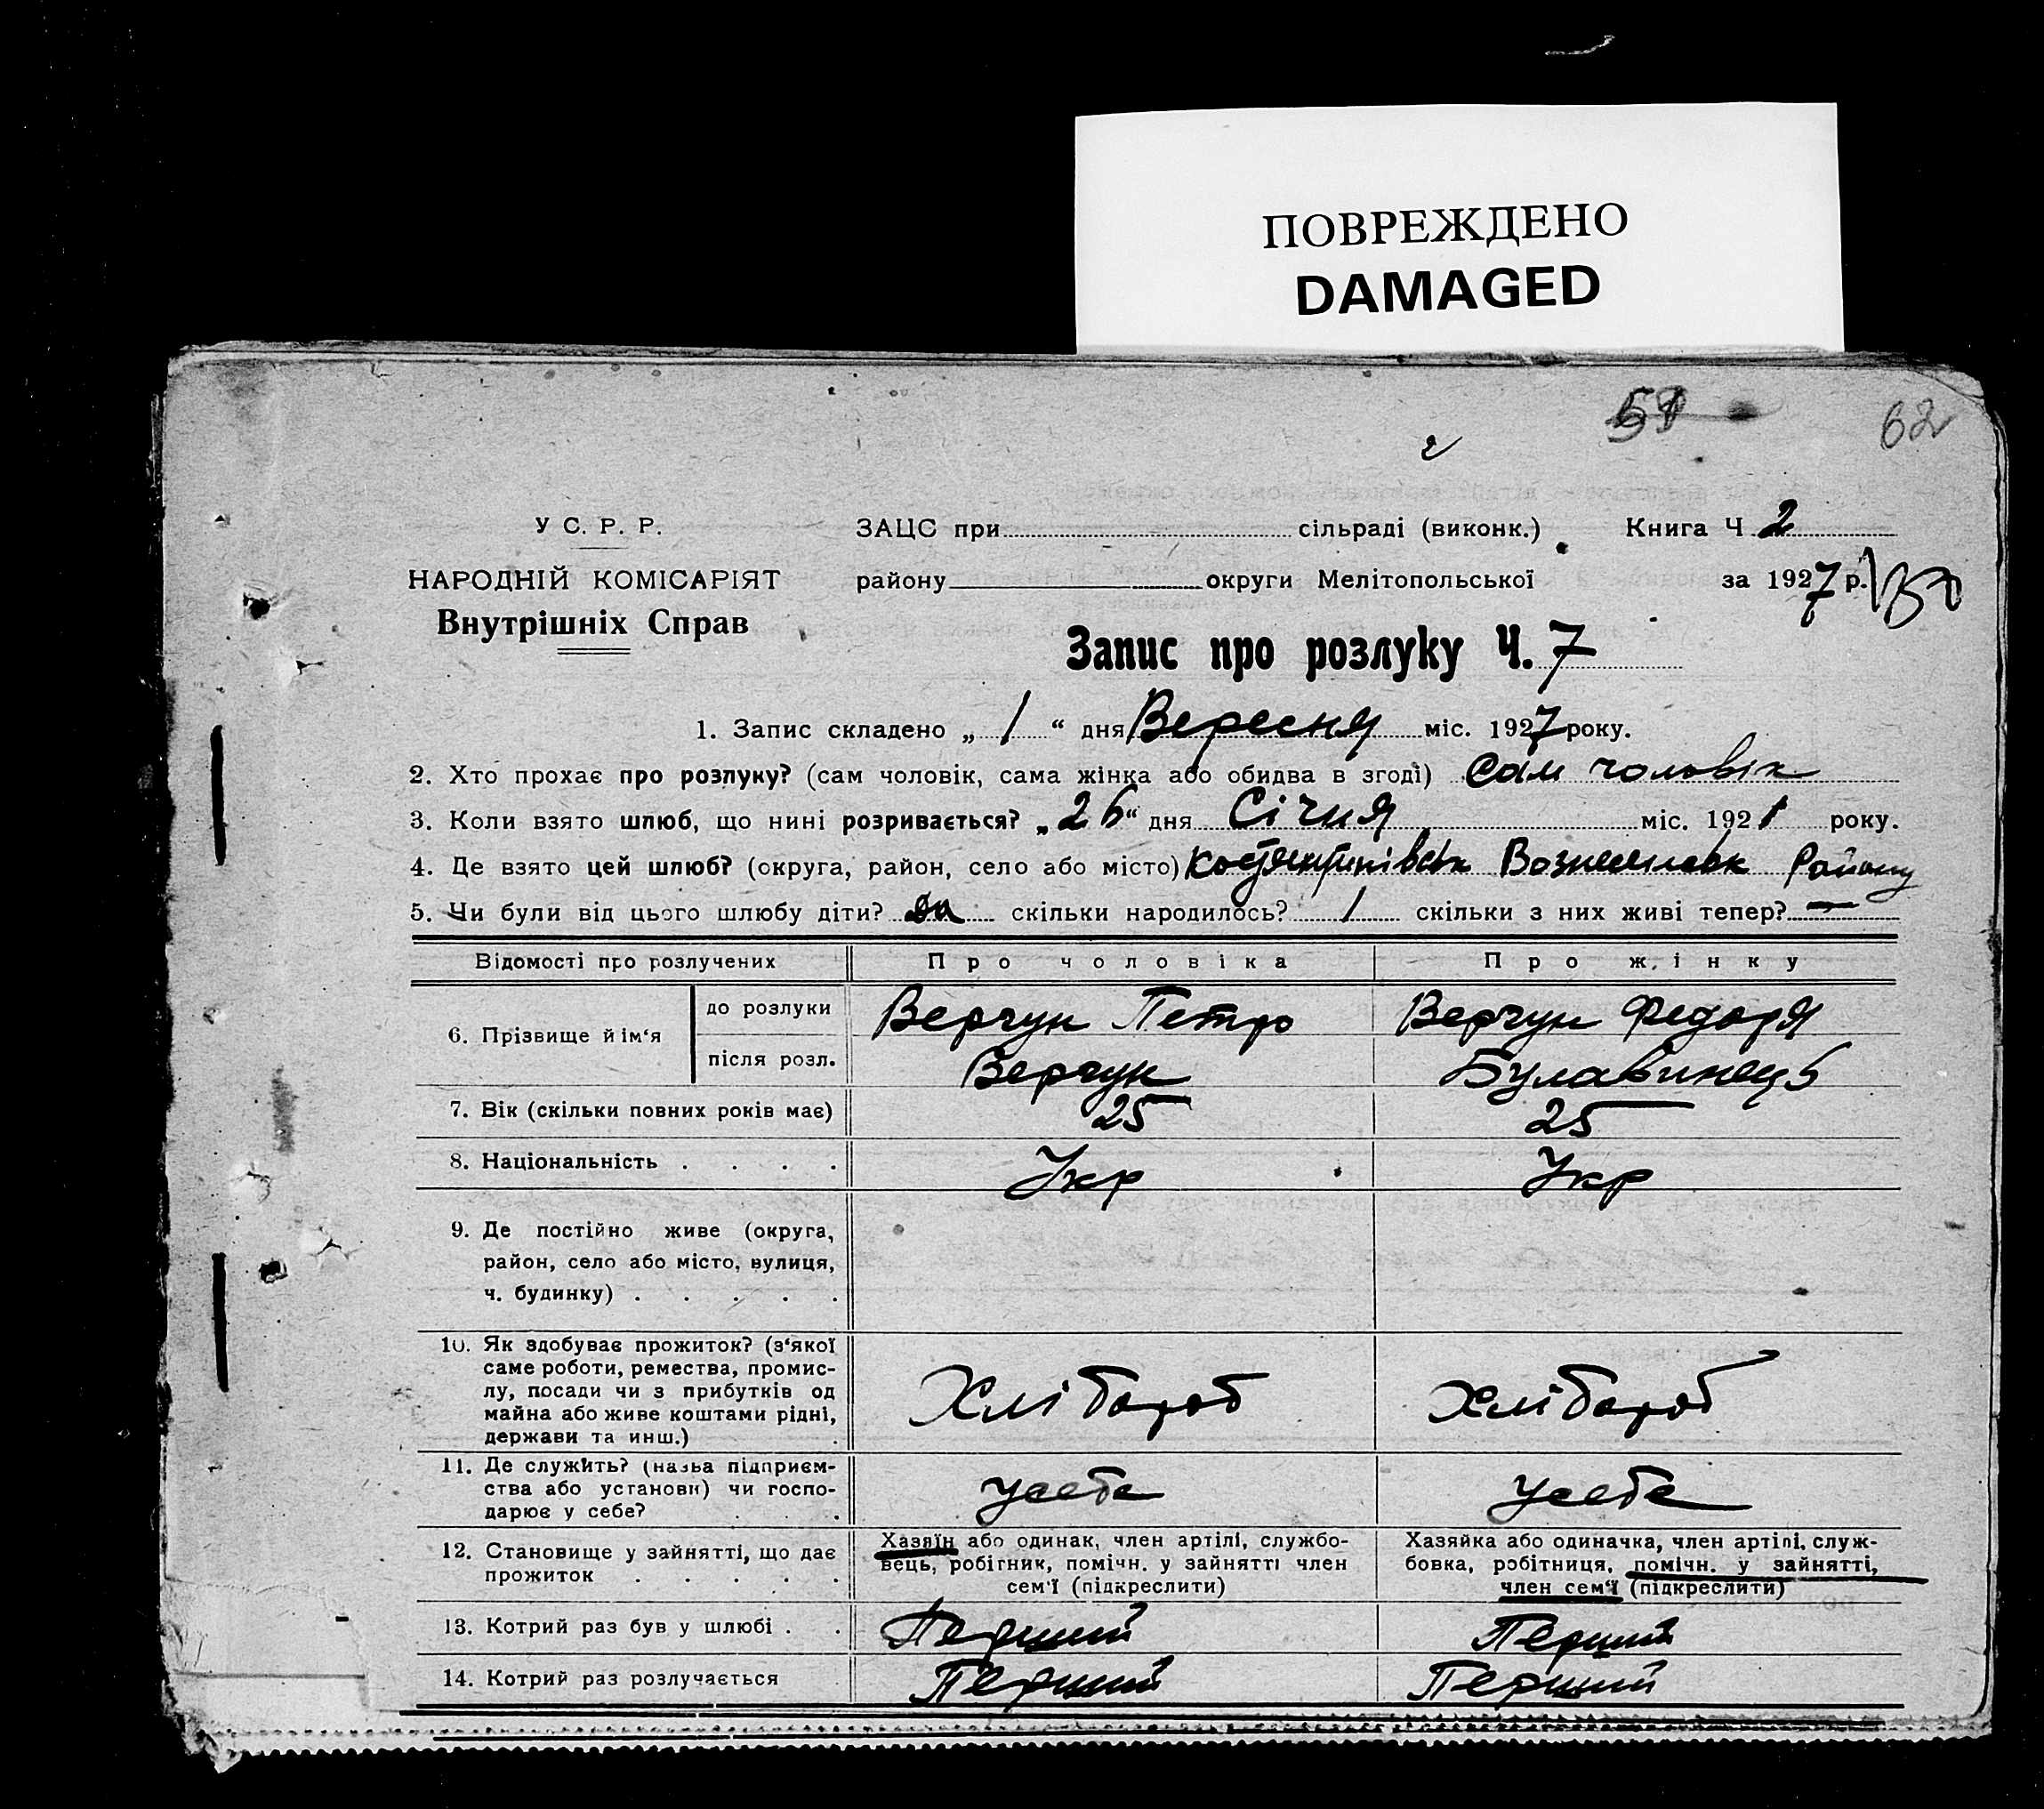 ПОВРЕЖДЕНО
DAMAGED
62
У С. Р. Р.
НАРОДНІЙ КОМІСАРІЯТ
Внутрішніх Справ
ЗАЦС при сільраді (виконк.) Книга Ч 2
району округи Мелітопольської за 1927 р.
Запис про розлуку Ч. 7
1. Запис складено „ 1 “ дня Вересня міс. 1927 року.
2. Хто прохає про розлуку? (сам чоловік, сама жінка або обидва в згоді) Сам чоловік
3. Коли взято шлюб, що нині розривається? „26“ дня Січня міс. 1921 року.
4. Де взято цей шлюб? (округа, район, село або місто) Району
5. Чи були від цього шлюбу діти? да скільки народилось? 1 скільки з них живі тепер? —
Відомості про розлучених Про чоловіка Про жінку
6. Прізвище й ім‘я
до розлуки Верчун Петро Верчун Федоря
після розл. Верчун Булавинець
7. Вік (скільки повних років має) 25 25
8. Національність . . . . Укр Укр
9. Де постійно живе (округа,
район, село або місто, вулиця,
ч. будинку) . . . . .
10. Як здобуває прожиток? (з‘якої
саме роботи, ремества, промис-
лу, посади чи з прибутків од
майна або живе коштами рідні,
держави та инш.) .
Хлібороб Хлібороб
11. Де служить? (назва підприєм-
ства або установи) чи госпо-
дарює у себе? . . .
усебе усебе
12. Становище у зайнятті, що дає
прожиток . . . . .
Хазяїн або одинак, член артілі, службо-
вець, робітник, помічн. у зайнятті член
сем‘ї (підкреслити)
Хазяйка або одиначка, член артілі, служ-
бовка, робітниця, помічн. у зайнятті,
член сем‘ї (підкреслити)
13. Котрий раз був у шлюбі . . Перший Перший
14. Котрий раз розлучається Перший Перший